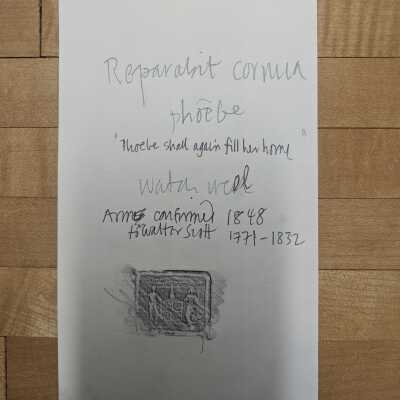 Reparabit cornua
phoebe
"Phoebe shall again fill her horns"
Watch well
Arms confirmed 1848
to Walter Scott 1771-1832